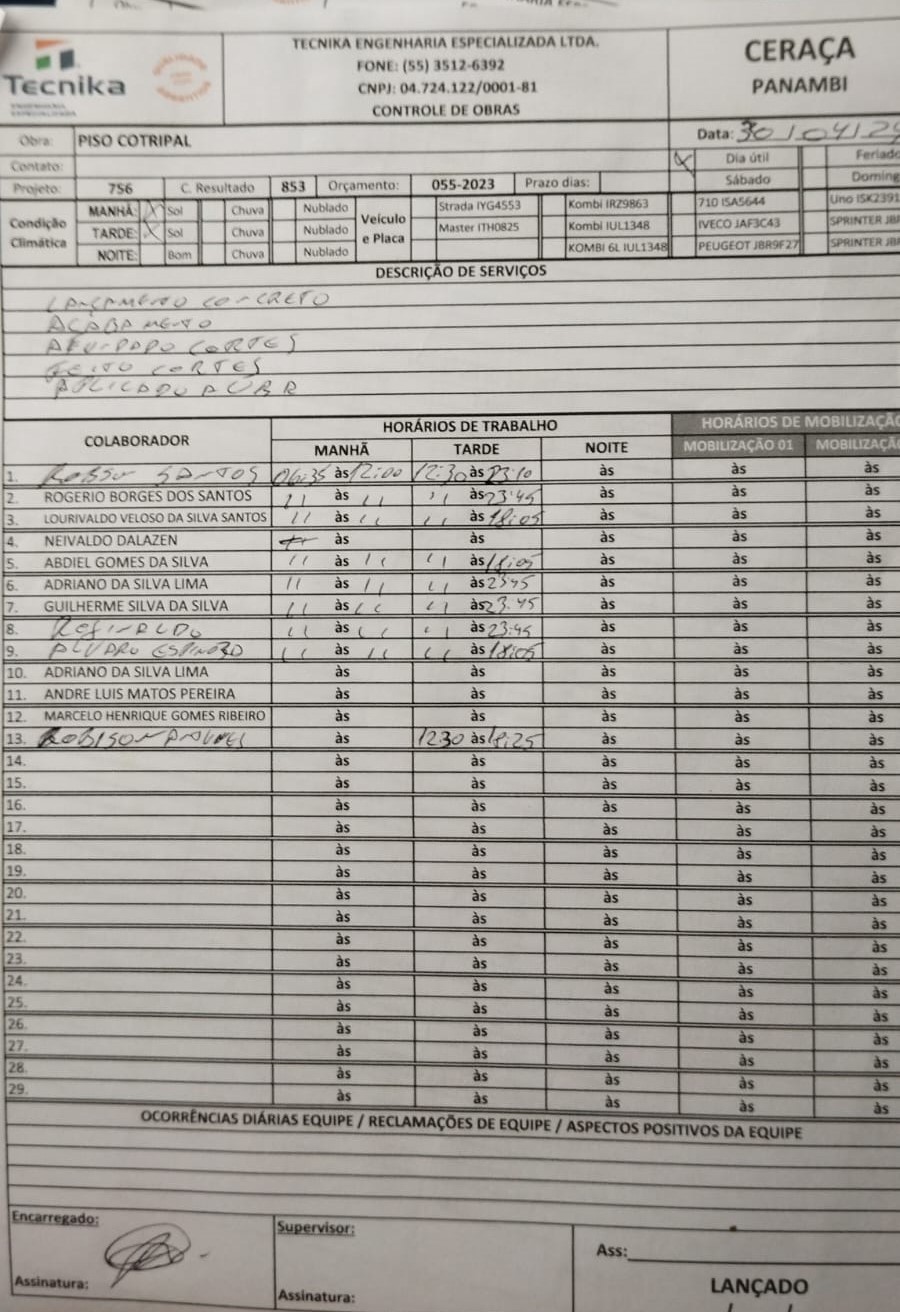 TECNIKA ENGENHARIA ESPECIALIZADA LTDA.
FONE: (55) 3512-6392
CNPJ: 04.724.122/0001-81
CONTROLE DE OBRAS
Tecnika
CERAÇA
PANAMBI
Obra: PISO COTRIPAL
Data: 30/04/24
Contato:
X Dia útil Feriado
Projeto: 756 C. Resultado 853 Orçamento: 055-2023 Prazo dias: Sábado Doming
Condição Climática
MANHÃ: X Sol Chuva Nublado
TARDE: X Sol Chuva Nublado
NOITE: Bom Chuva Nublado
Veículo e Placa
Strada IYG4553 Kombi IRZ9863 710 ISA5644 Uno ISK2391
Master ITH0825 Kombi IUL1348 IVECO JAF3C43 SPRINTER
KOMBI 6L IUL1348 PEUGEOT JBR9F27 SPRINTER
DESCRIÇÃO DE SERVIÇOS
LANÇAMENTO CONCRETO
ACABAMENTO
CORTES
FEITO CORTES
APLICADO
COLABORADOR
HORÁRIOS DE TRABALHO
HORÁRIOS DE MOBILIZAÇÃO
MANHÃ TARDE NOITE MOBILIZAÇÃO 01 MOBILIZAÇÃO
1. SANTOS 06:35 às 12:00 12:30 às 23:10 às às às
2. ROGERIO BORGES DOS SANTOS " às " " às 23:45 às às às
3. LOURIVALDO VELOSO DA SILVA SANTOS " às " " às 18:05 às às às
4. NEIVALDO DALAZEN às às às às às
5. ABDIEL GOMES DA SILVA " às " " às 18:05 às às às
6. ADRIANO DA SILVA LIMA " às " " às 23:45 às às às
7. GUILHERME SILVA DA SILVA " às " " às 23:45 às às às
8. REGINALDO " às " " às 23:45 às às às
9. ALVARO " às " " às 18:05 às às às
10. ADRIANO DA SILVA LIMA às às às às às
11. ANDRE LUIS MATOS PEREIRA às às às às às
12. MARCELO HENRIQUE GOMES RIBEIRO às às às às às
13. ROBISON às 1230 às 18:25 às às às
14. às às às às às
15. às às às às às
16. às às às às às
17. às às às às às
18. às às às às às
19. às às às às às
20. às às às às às
21. às às às às às
22. às às às às às
23. às às às às às
24. às às às às às
25. às às às às às
26. às às às às às
27. às às às às às
28. às às às às às
29. às às às às às
OCORRÊNCIAS DIÁRIAS EQUIPE / RECLAMAÇÕES DE EQUIPE / ASPECTOS POSITIVOS DA EQUIPE
Encarregado: Supervisor:
Ass:
Assinatura: Assinatura:
LANÇADO